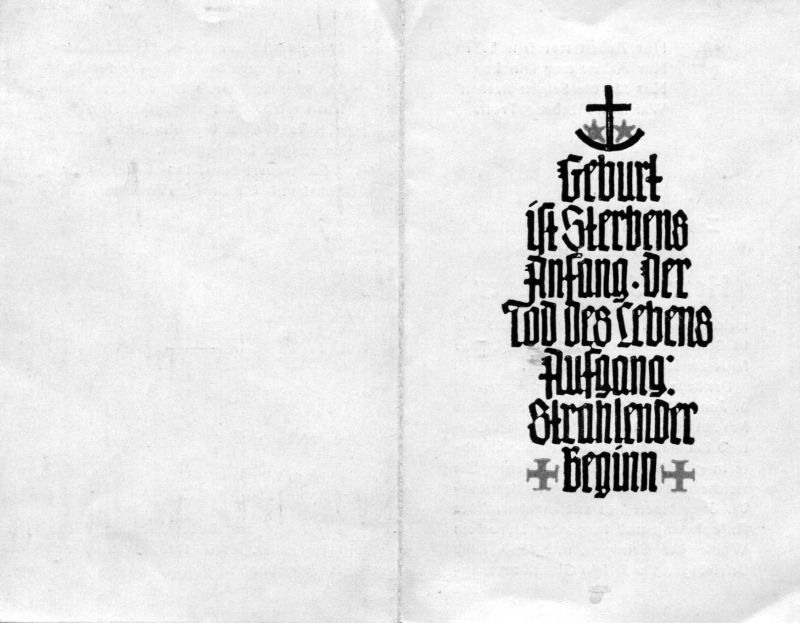 Geburt
ist Sterbens
Anfang. Der
Tod des Lebens
Aufgang:
Strahlender
Beginn